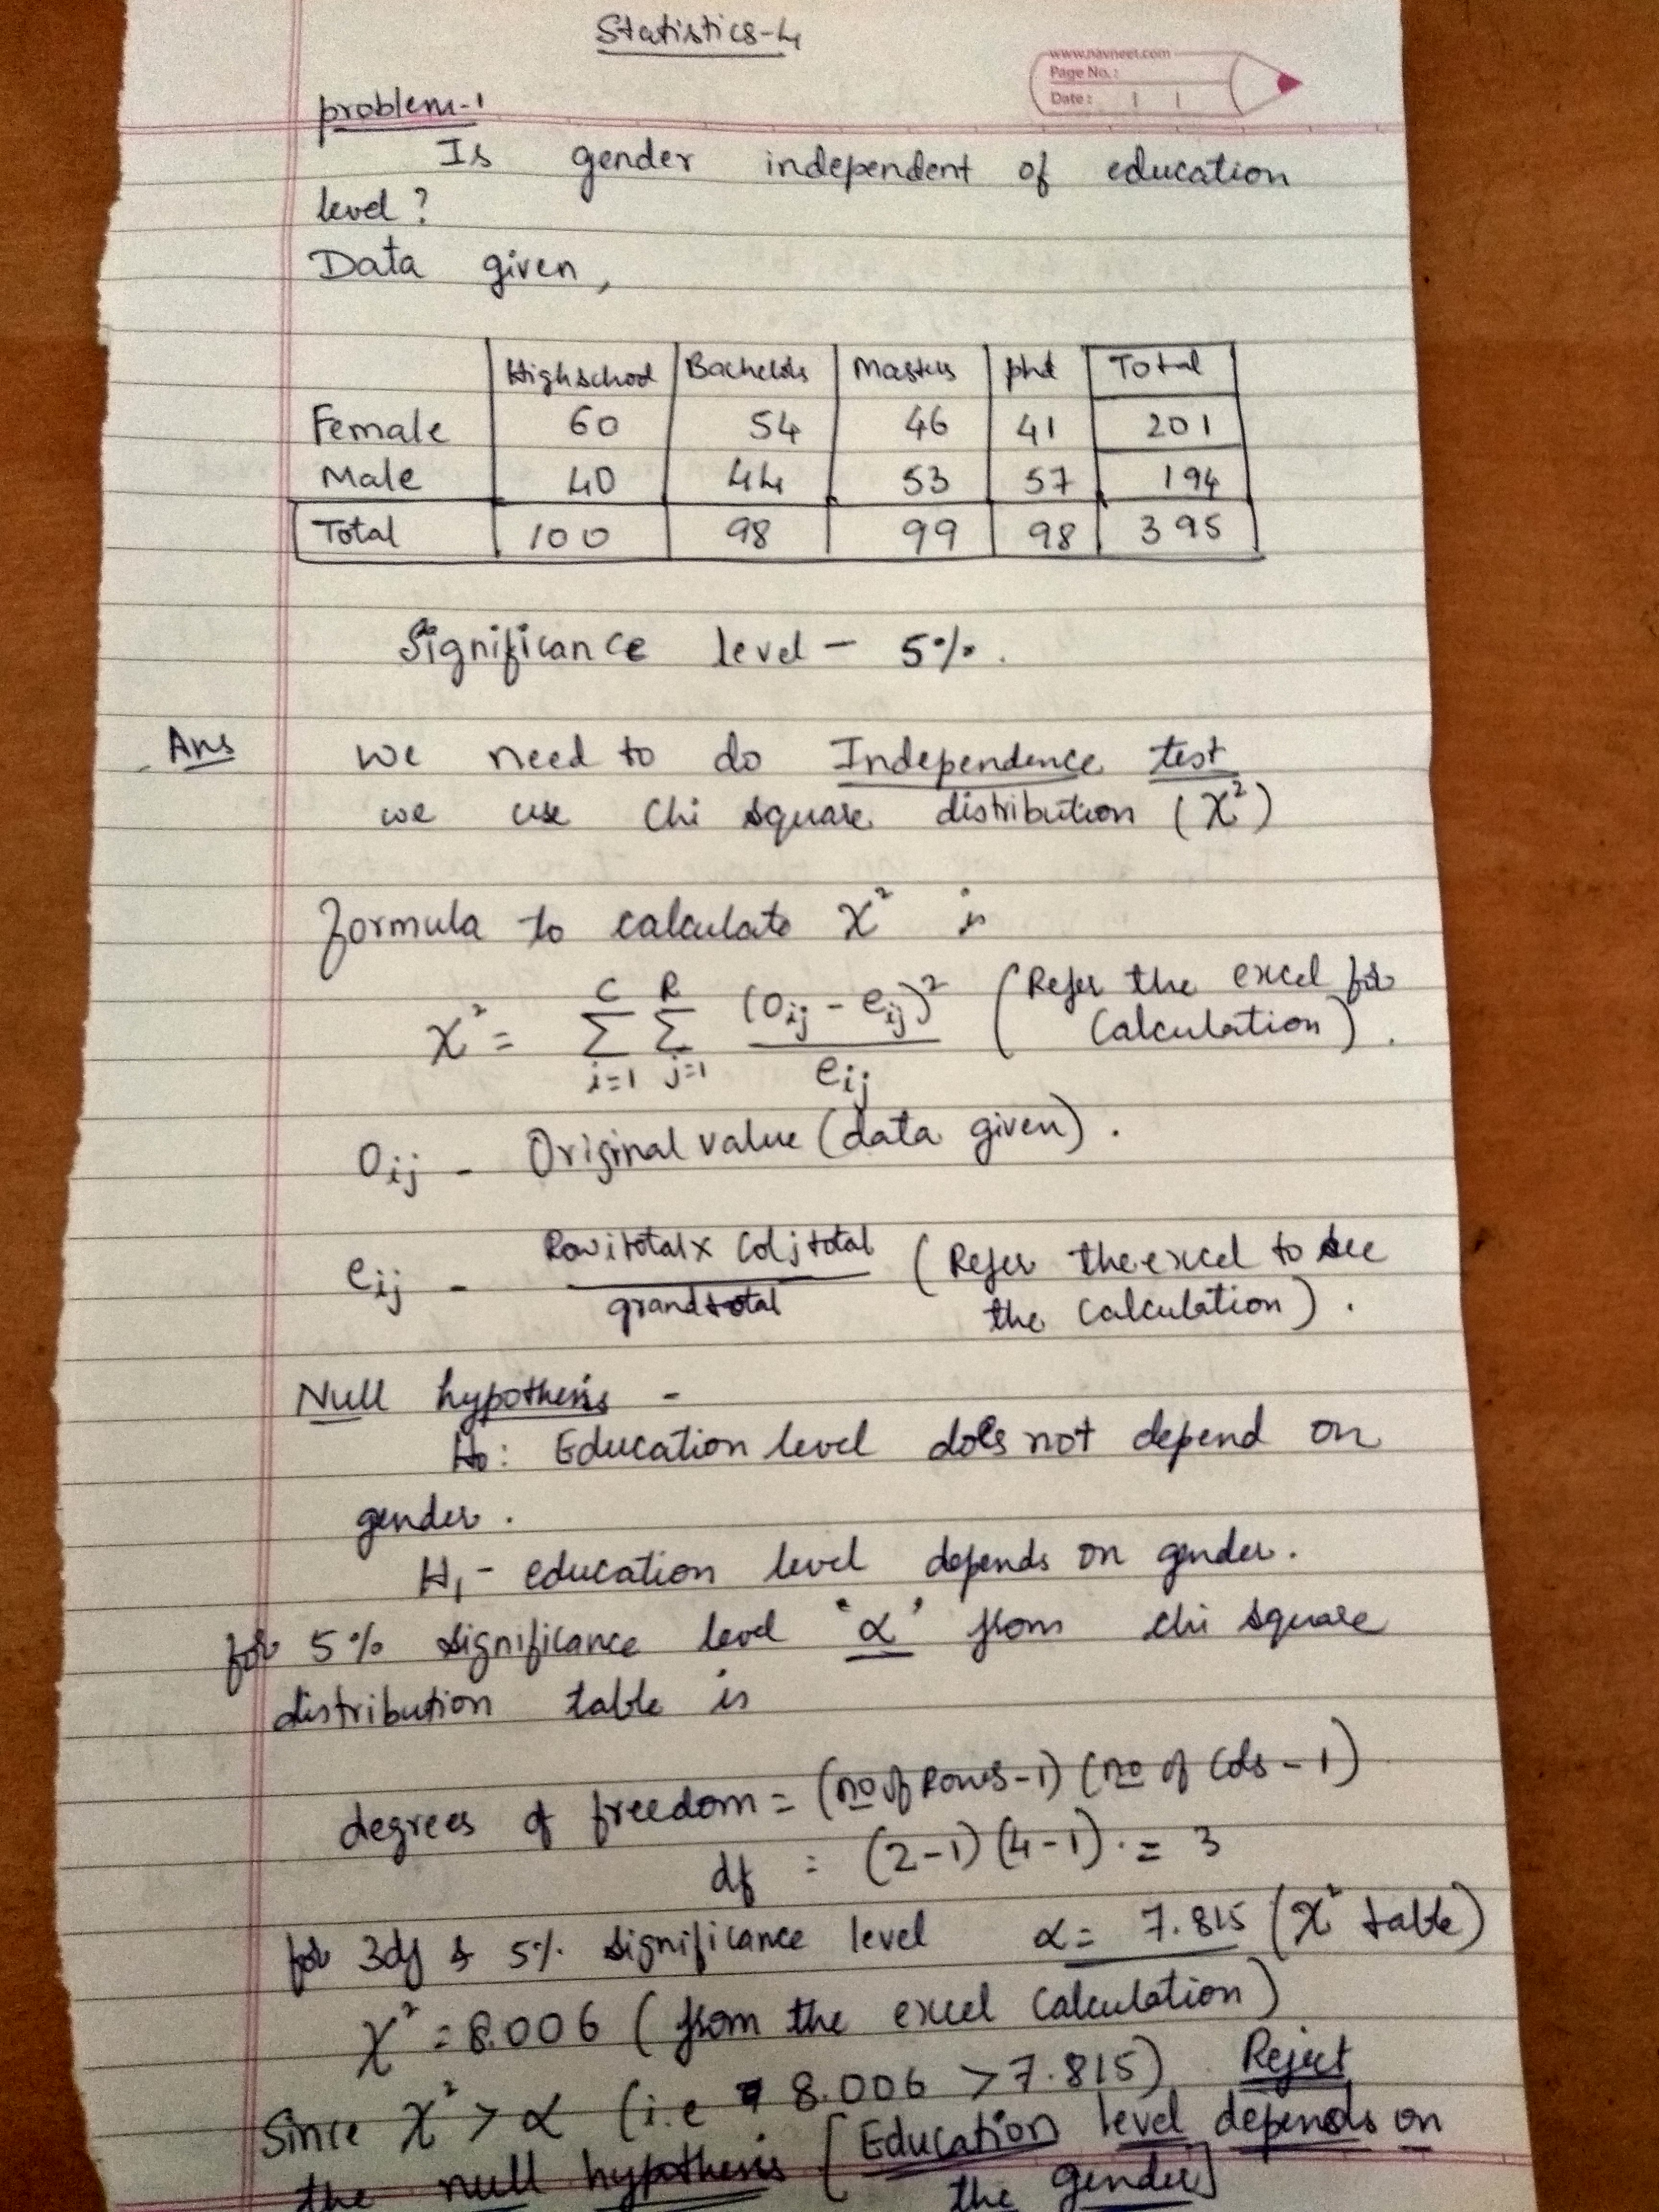 Statistics-4
www.navneet.com
Page No.:
Date:
problem-1
Is gender independent of education
level?
Data given,
Highschool Bachelors Masters phd Total
Female 60 54 46 41 201
Male 40 44 53 57 194
Total 100 98 99 98 395
Significance level - 5%.
Ans We need to do Independence test
we use Chi square distribution (χ²)
Formula to calculate χ² is
χ² = Σ_{i=1}^{C} Σ_{j=1}^{R} (O_ij - e_ij)² / e_ij (Refer the excel for Calculation).
O_ij - Original value (data given).
e_ij - Row i total x Col j total / grand total (Refer the excel to see the Calculation).
Null hypothesis -
H0: Education level does not depend on
gender.
H1 - education level depends on gender.
for 5% significance level 'α' from chi square
distribution table is
degrees of freedom = (no of Rows-1) (no of Cols-1)
df = (2-1) (4-1) = 3
for 3df & 5% significance level α = 7.815 (χ² table)
χ² = 8.006 (from the excel calculation)
Since χ² > α (i.e 8.006 > 7.815) Reject
the null hypothesis [Education level depends on
the gender]